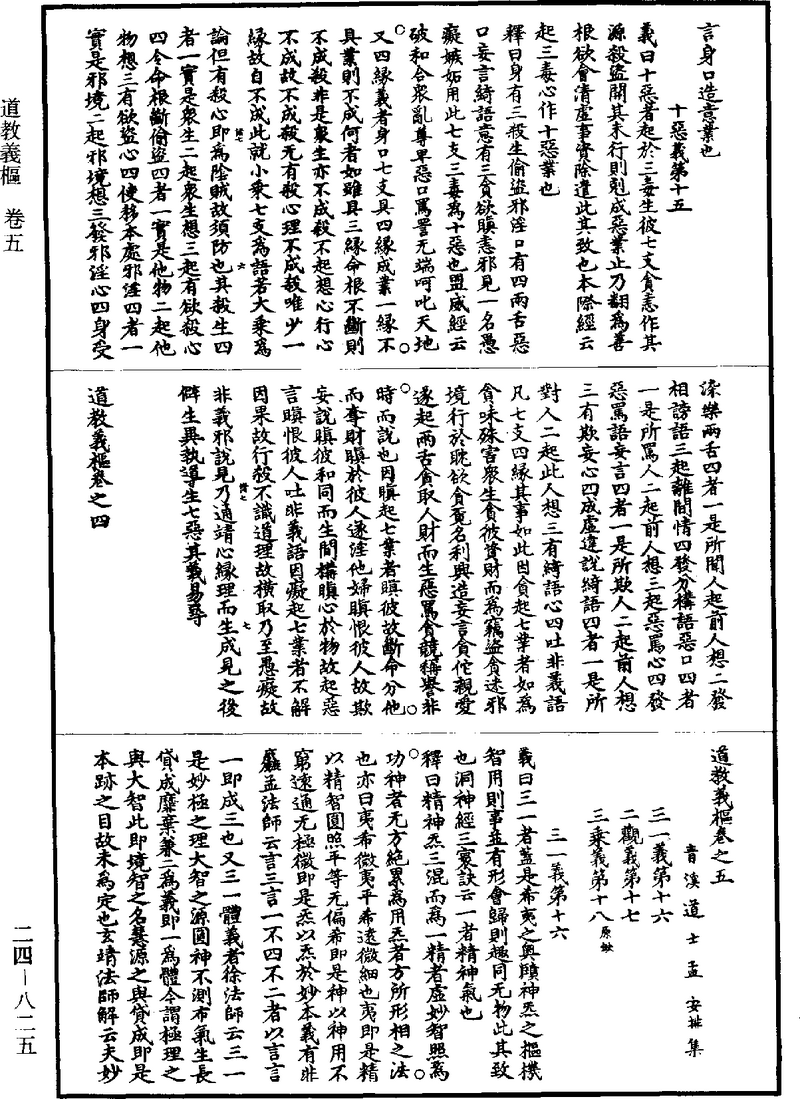 道教義樞　卷五
二四－八二五
言身口造意業也
十惡義第十五
義曰十惡者起於三毒生彼七支貪恚作其
源殺盜開其末行則剋成惡業止乃翻為善
根欲會清虛事實除遣此其致也本際經云
起三毒心作十惡業也
釋曰身有三殺生偷盜邪淫口有四兩舌惡
口妄言綺語意有三貪欲瞋恚邪見一名愚
癡嫉妬用此七支三毒為十惡也盟威經云
破和合眾亂尊卑惡口罵詈无端呵叱天地
又四緣義者身口七支具四緣成業一緣不
具業則不成何者如雖具三緣命根不斷則
不成殺非是眾生亦不成殺不起想心行心
不成故不成殺无有殺心理不成殺唯少一
緣故自不成此就小乘七支為語若大乘為
論但有殺心即為陰賊故須防也其殺生四
者一實是眾生二起眾生想三起有欲殺心
四令命根斷偷盜四者一實是他物二起他
物想三有欲盜心四使移本處邪淫四者一
實是邪境二起邪境想三發邪淫心四身受
染樂兩舌四者一是所間人起前人想二發
相謗語三起離間情四發分構語惡口四者
一是所罵人二起前人想三起惡罵心四發
惡罵語妄言四者一是所欺人二起前人想
三有欺妄心四成虛違說綺語四者一是所
對人二起此人想三有綺語心四吐非義語
凡七支四緣其事如此因貪起七業者如為
貪味殊害眾生貪彼資財而為竊盜貪迷邪
境行於耽欲貪覓名利興造妄言貪佗親愛
遂起兩舌貪取人財而生惡罵貪競稱譽非
時而說也因瞋起七業者瞋彼故斷命分他
而奪財瞋於彼人遂淫他婦瞋恨彼人故欺
妄說瞋彼和同而生間構瞋心於物故起惡
言瞋恨彼人吐非義語因癡起七業者不解
因果故行殺不識道理故橫取乃至愚癡故
非義邪說見乃通靖心緣理而生成見之後
僻生異執導生七惡其義易尋
道教義樞卷之四
道教義樞卷之五
青溪道士孟安排集
三一義第十六
二觀義第十七
三乘義第十八原缺
三一義第十六
義曰三一者蓋是希夷之奧賾神炁之樞機
智用則事並有形會歸則趣同无物此其致
也洞神經三寰訣云一者精神氣也
釋曰精神炁三混而為一精者虛妙智照為
功神者无方絕累為用炁者方所形相之法
也亦曰夷希微夷平希遠微細也夷即是精
以精智圓照平等无偏希即是神以神用不
窮遠通无極微即是炁以炁於妙本義有非
麤孟法師云言三言一不四不二者以言言
一即成三也又三一體義者徐法師云三一
是妙極之理大智之源圓神不測布氣生長
貸成靡棄兼二為義即一為體今謂極理之
與大智此即境智之名慧源之與貸成即是
本跡之目故未為定也玄靖法師解云夫妙